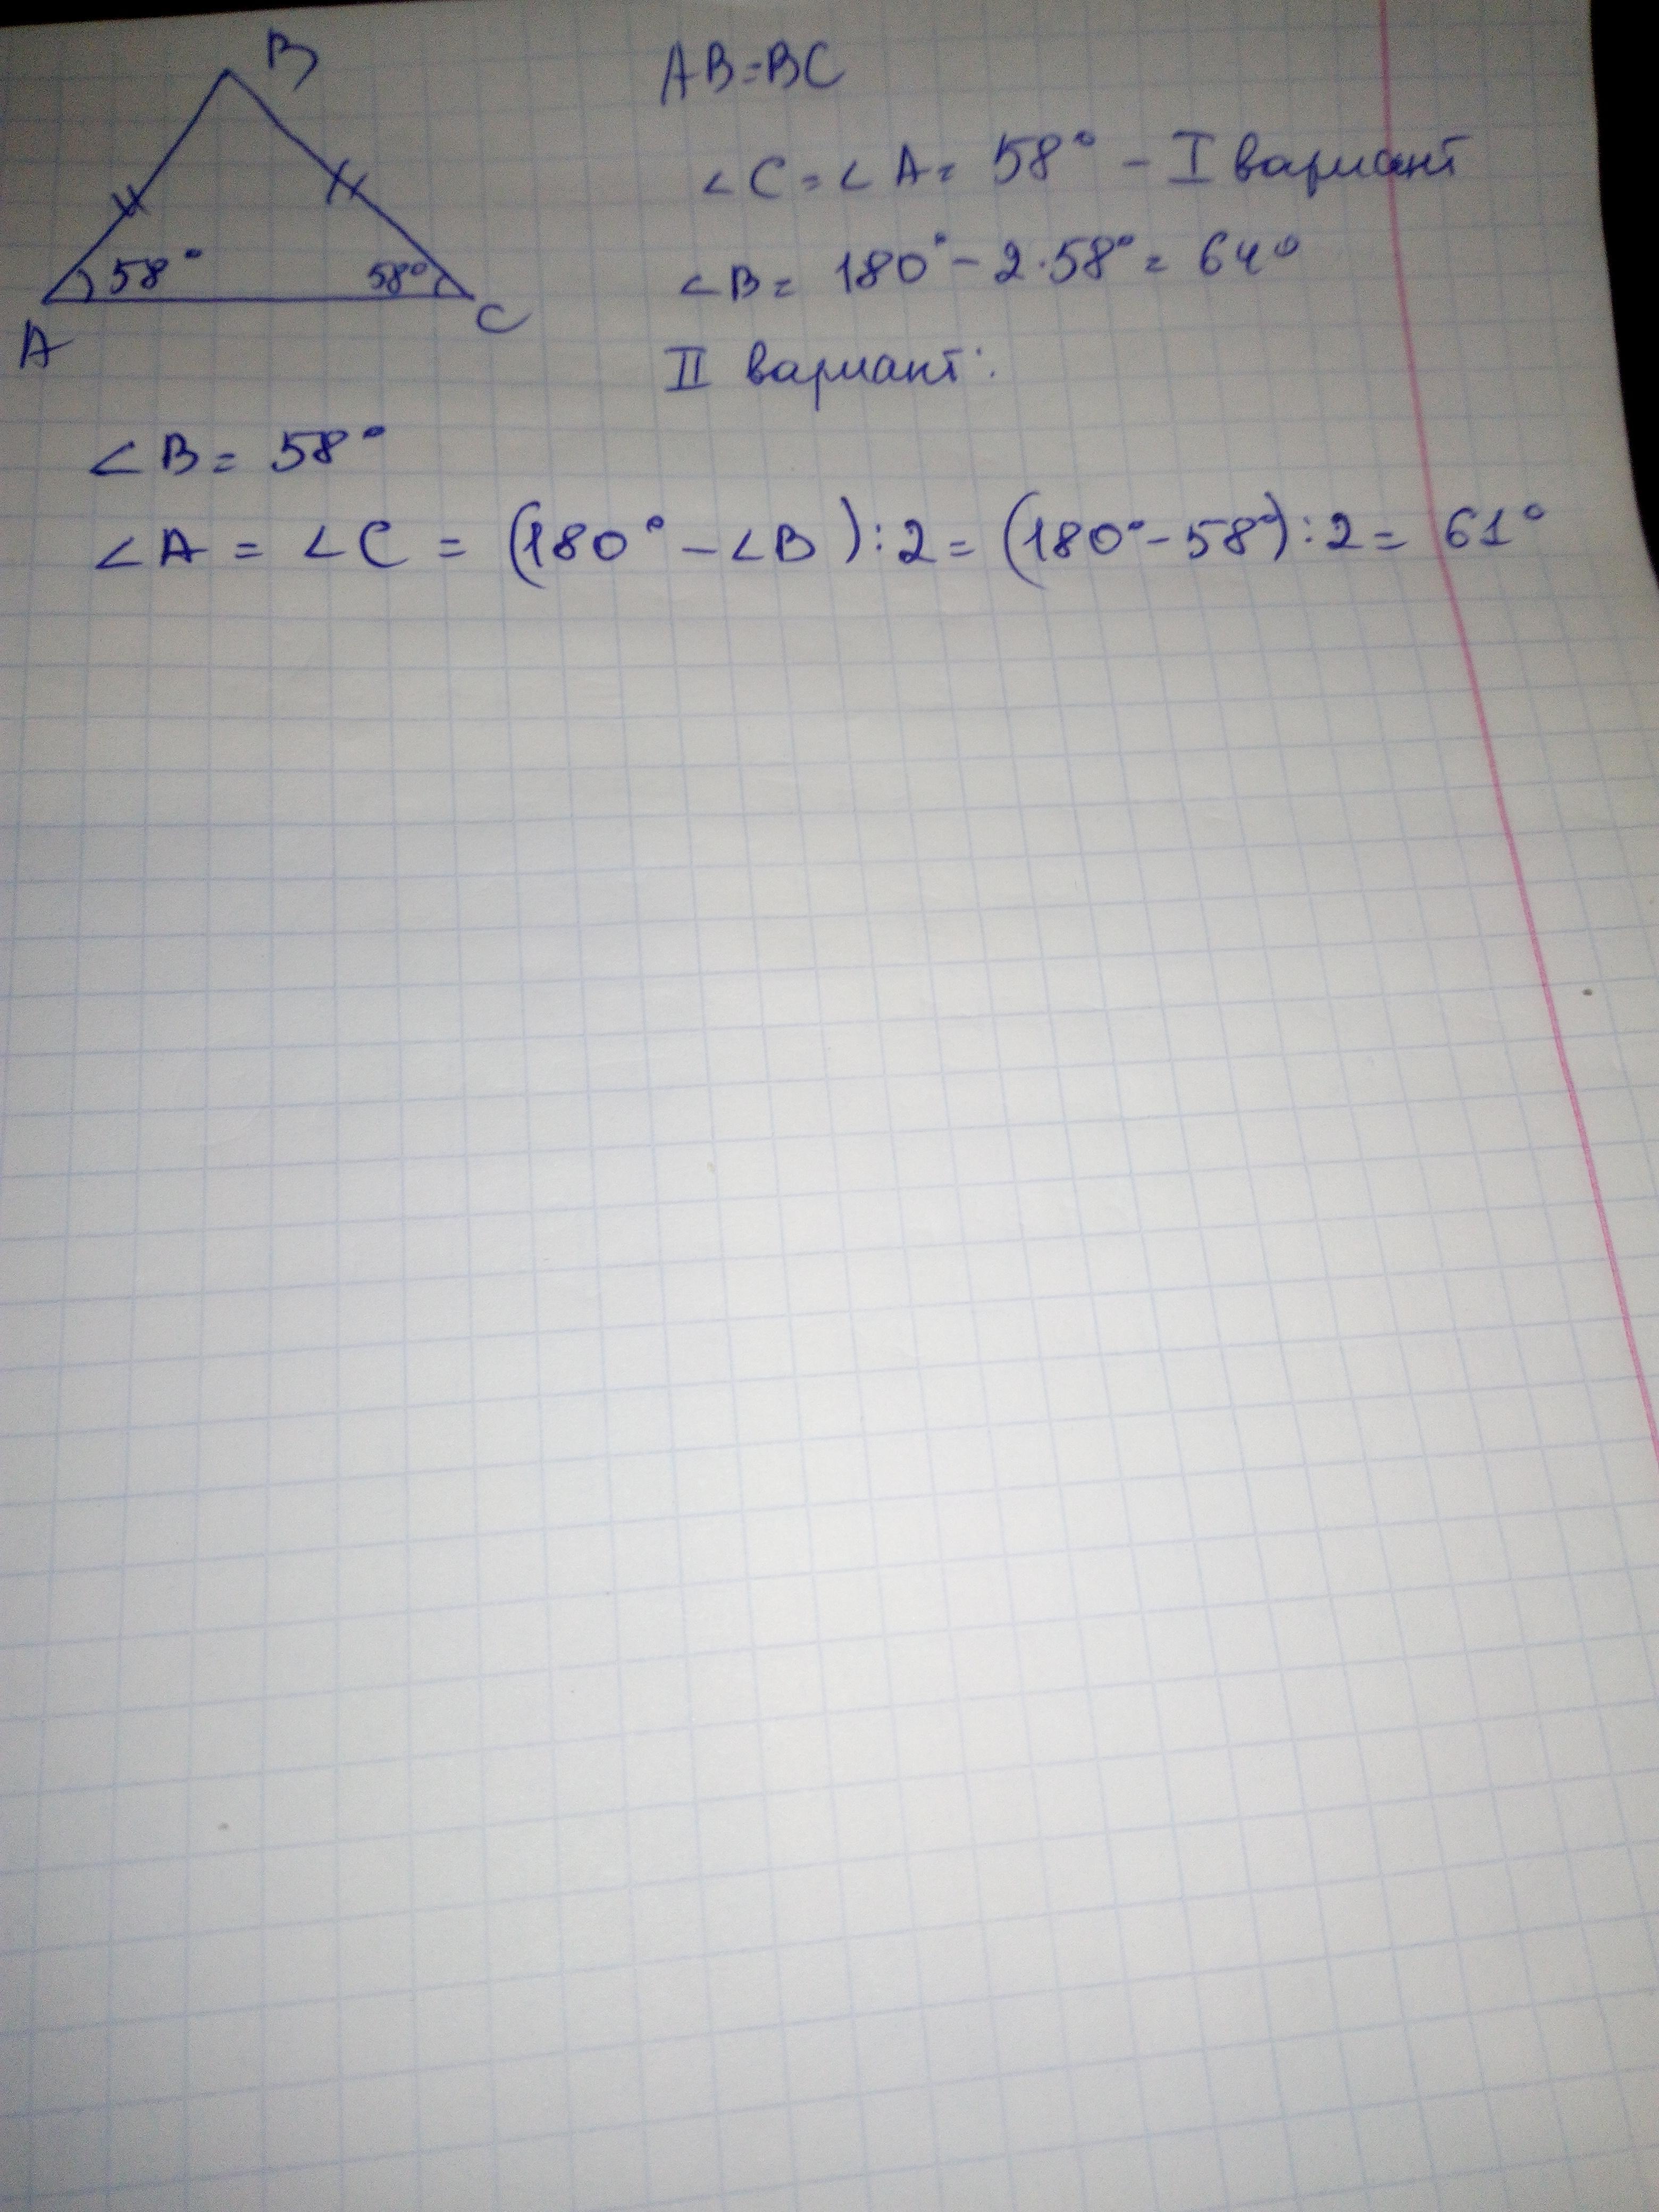 B
58° 58°
A C
AB=BC
∠C=∠A= 58° – I вариант
∠B= 180°– 2·58°= 64°
II вариант:
∠B= 58°
∠A = ∠C = (180° – ∠B):2= (180°–58°):2= 61°